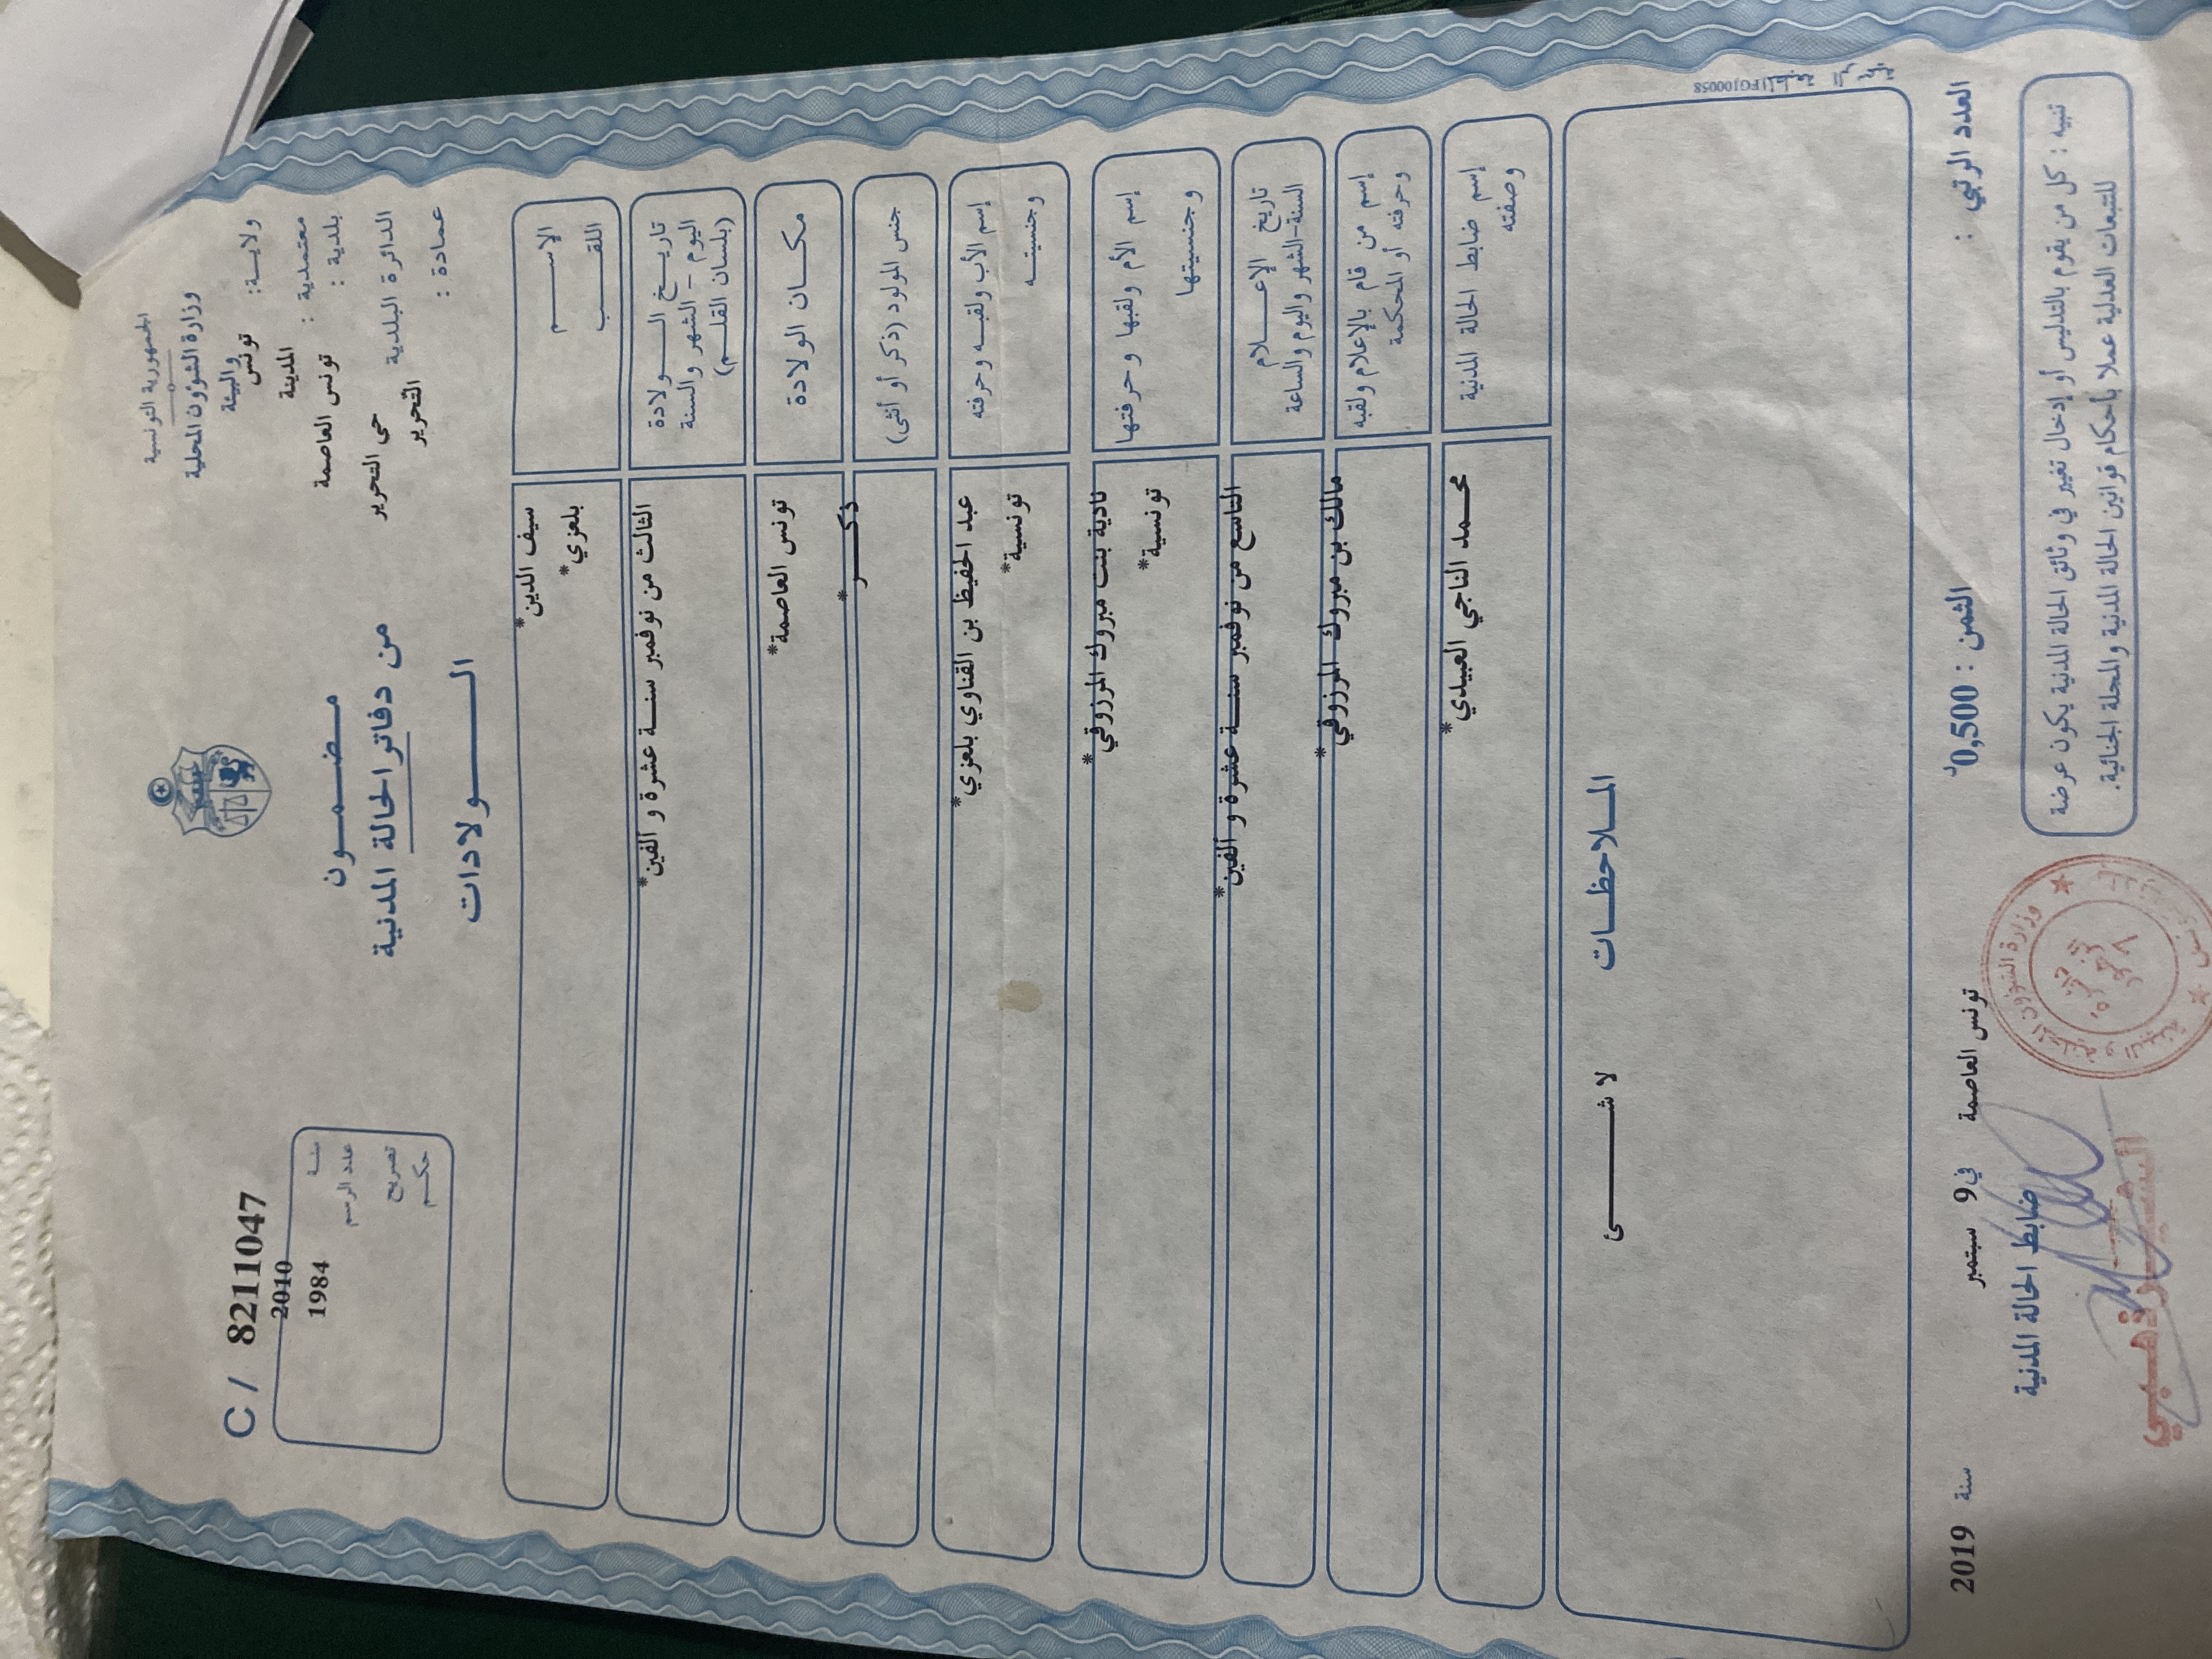 الجمهورية التونسية
وزارة الشؤون المحلية
والبيئة
ولاية: تونس
معتمدية : المدينة
بلدية : تونس العاصمة
الدائرة البلدية حي التحرير
عمادة : التحرير
مضمون
من دفاتر الحالة المدنية
الولادات
C / 8211047
سنة 2010
عدد الرسم 1984
تصريح
حكم
الاسم سيف الدين*
اللقب بلعزي*
تاريخ الولادة
اليوم - الشهر والسنة
(بلسان القلم)
الثالث من نوفمبر سنة عشرة و الفين*
مكان الولادة تونس العاصمة*
جنس المولود (ذكر أو أنثى) ذكر*
إسم الأب ولقبه وحرفته عبد الحفيظ بن القناوي بلعزي*
وجنسيته تونسية*
إسم الأم ولقبها وحرفتها نادية بنت مبروك المرزوقي*
وجنسيتها تونسية*
تاريخ الإعلام
السنة-الشهر واليوم والساعة
التاسع من نوفمبر سنة عشرة و الفين*
إسم من قام بالإعلام ولقبه
وحرفته أو المحكمة
مالك بن مبروك المرزوقي*
إسم ضابط الحالة المدنية
وصفته
محمد الناجي العبيدي*
الملاحظات لا شئ
FGJ00058
العدد الرتبي : الثمن : 0,500د تونس العاصمة في 9 سبتمبر سنة 2019
ضابط الحالة المدنية
تنبيه : كل من يقوم بالتدليس أو إدخال تغيير في وثائق الحالة المدنية يكون عرضة
للتتبعات العدلية عملا بأحكام قوانين الحالة المدنية والمجلة الجنائية.
وزارة الشؤون المحلية و البيئة